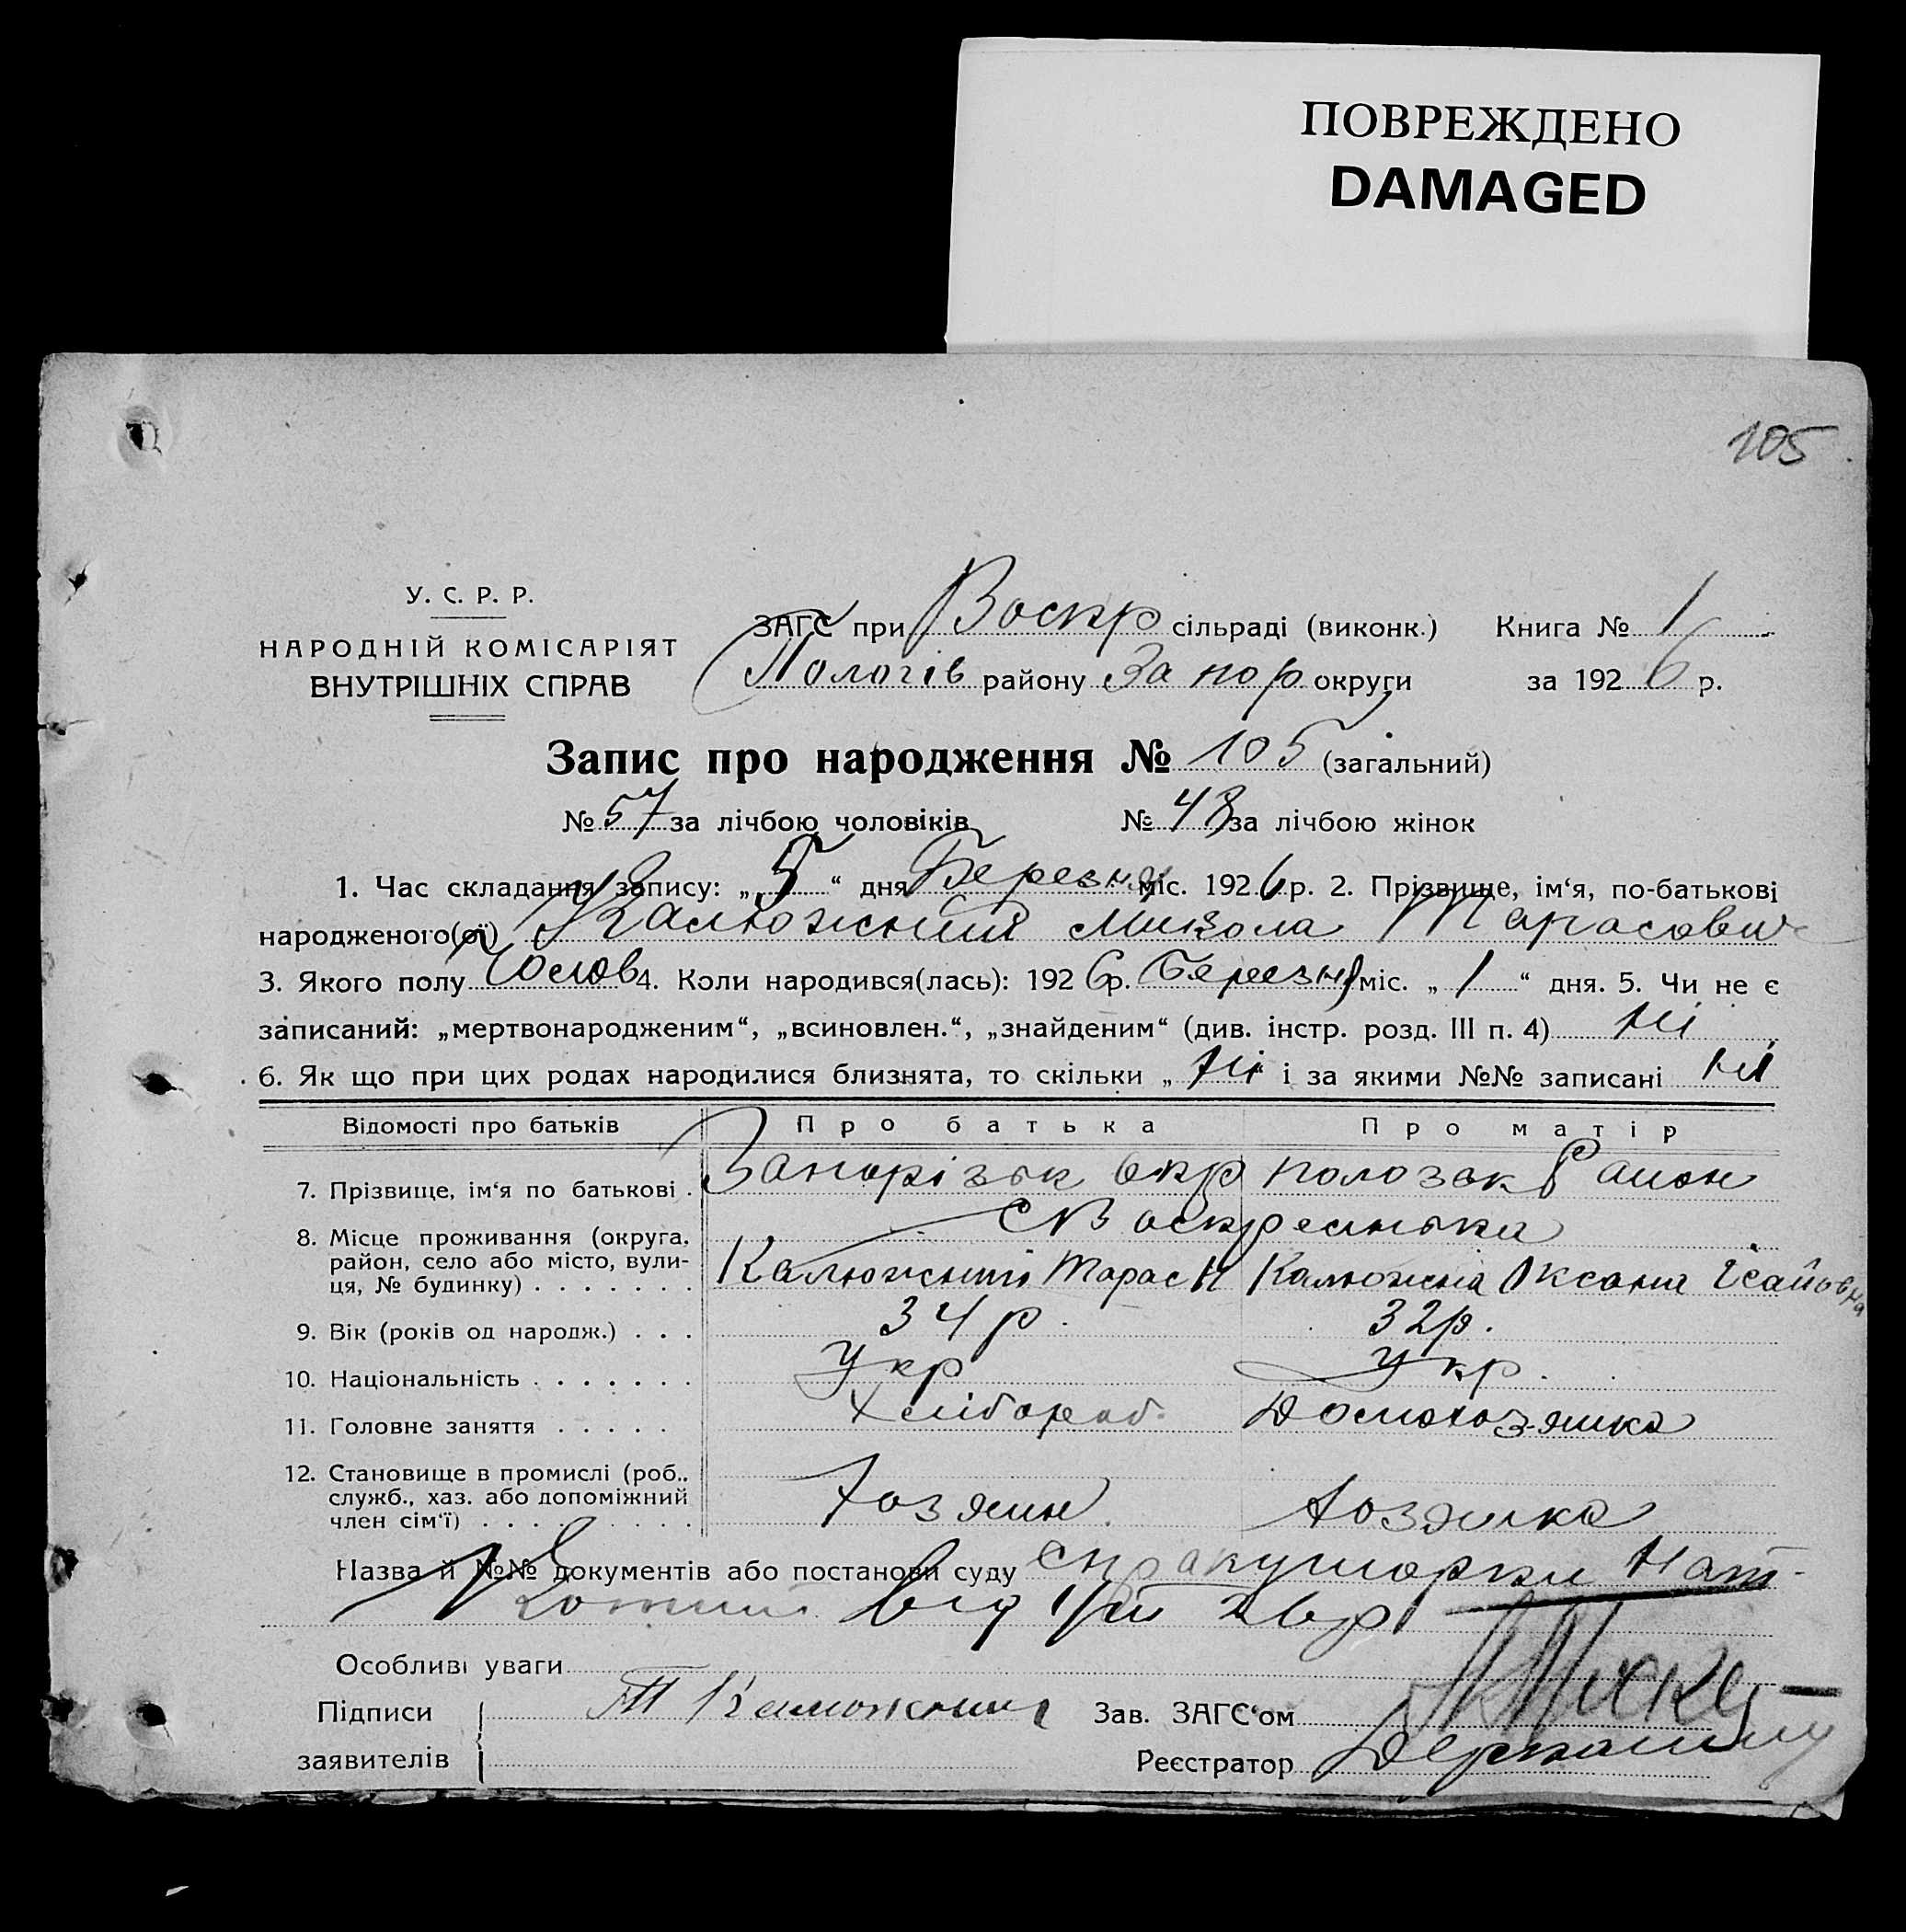 ПОВРЕЖДЕНО
DAMAGED
105
У. С. Р. Р.
НАРОДНІЙ КОМІСАРІЯТ
ВНУТРІШНІХ СПРАВ
ЗАГС при Воскр сільраді (виконк.) Книга № 1
Пологів району Запор округи за 1926 р.
Запис про народження № 105 (загальний)
№ 57 за лічбою чоловіків № 48 за лічбою жінок
1. Час складання запису: „ 5 “ дня Березня міс. 1926 р. 2. Прізвище, ім‘я, по-батькові
народженого(ої) Калюжний Микола Тарасович
3. Якого полу Чолов 4. Коли народився(лась): 1926 р. Березня міс. „ 1 “ дня. 5. Чи не є
записаний: „мертвонародженим“, „всиновлен.“, „знайденим“ (див. інстр. розд. III п. 4) Ні
6. Як що при цих родах народилися близнята, то скільки „ Ні і за якими №№ записані Ні
Відомості про батьків Про батька Про матір
7. Прізвище, ім‘я по батькові . Запорізьк окр Район
8. Місце проживання (округа, район, село або місто, вулиця, № будинку) . . . . . . . С Воскресенька
Калюжний Тарас Н Калюжна Оксана Ісаївна
9. Вік (років од народж.) . . . 34 р. 32 р.
10. Національність . . . . . . . Укр Укр.
11. Головне заняття . . . . . Хлібороб. Домохозяйка
12. Становище в промислі (роб.,
служб., хаз. або допоміжний
член сім‘ї) . . . . . . . . . Хозяин. Хозяйка
Назва й №№ документів або постанови суду акушорки
від
Особливі уваги
Підписи Т Калюжний Зав. ЗАГС‘ом
заявителів Реєстратор